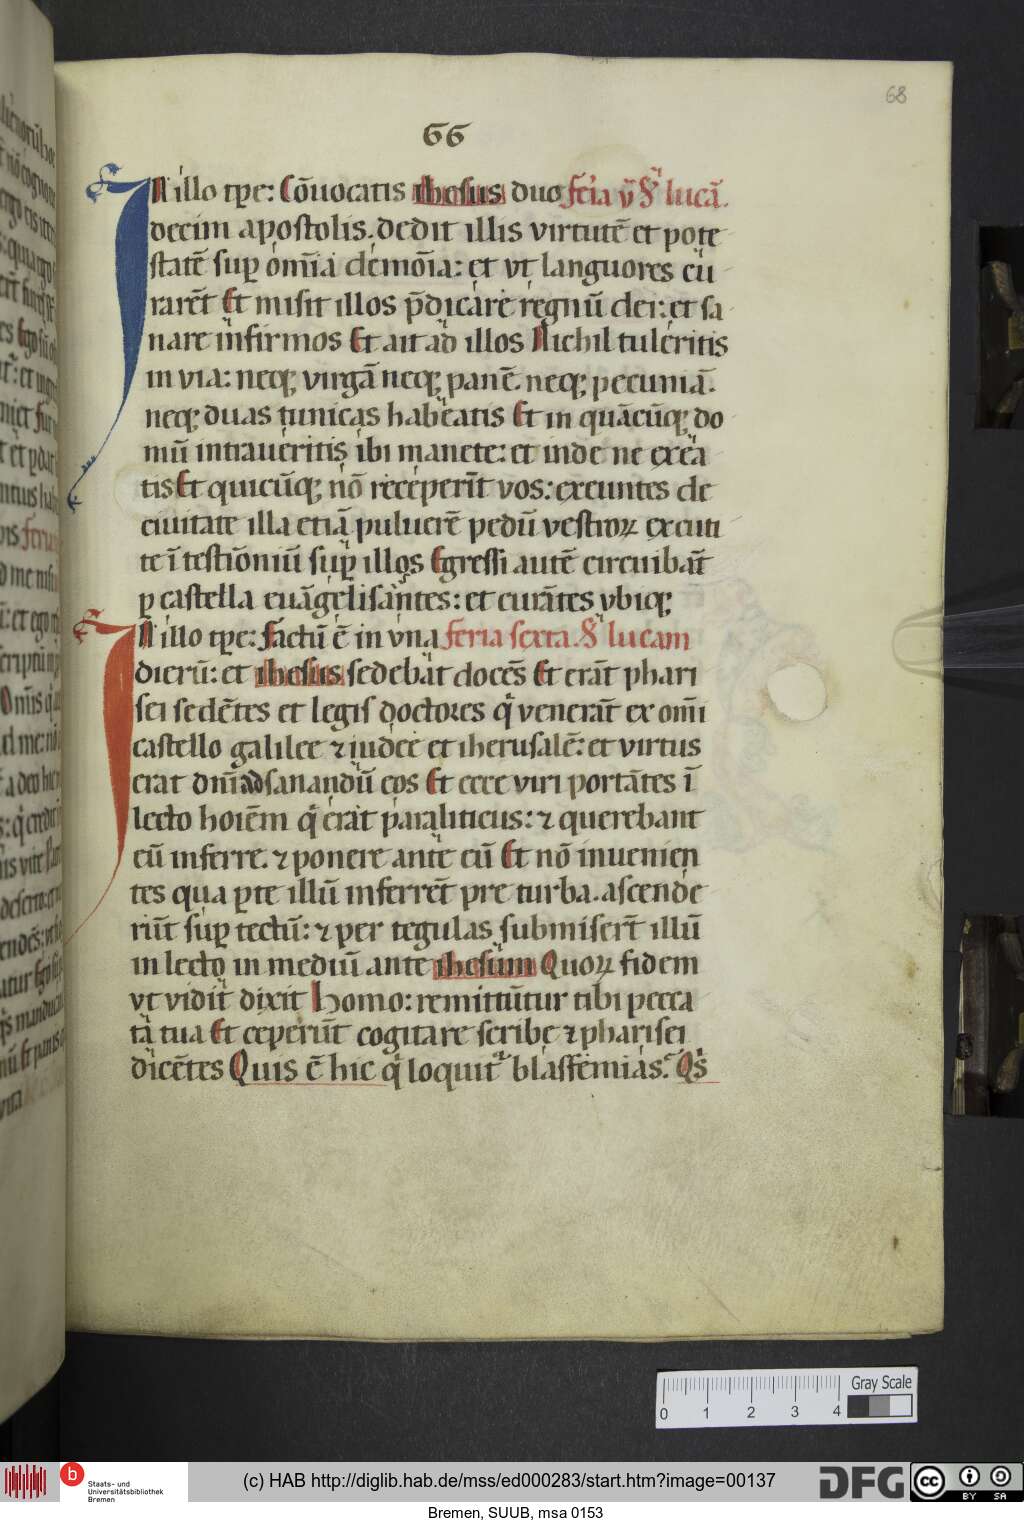 68
66
In illo tp̄e: Cōuocatis ihesus duo feria v̄ S̄ lucā.
decim apostolis. dedit illis virtutē et pote
statē sup̱ om̄ia demōia: et vt languores cu
rarēt Et misit illos p̄dicare regnū dei: et sa
nare infirmos Et ait ad illos Nichil tuleritis
in via: neq; virgā neq; panē. neq; pecuniā.
neq; duas tunicas habeatis Et in quācūq; do
mū intraueritis ibi manete: et inde ne exea
tis Et quicūq; nō receperīt vos: exeuntes de
ciuitate illa etiā puluerē pedū vestroꝝ excuti
te ī testīoniū sup̱ illos Egressi autē circuibāt
ꝑ castella euāgelisantes: et curātes vbiq;
In illo tp̄e: Factū ē in vna feria sexta. S̄ lucam
dierū: et ihesus sedebat docēs Et erāt phari
sei sedētes et legis doctores q̄ venerāt ex om̄i
castello galilee ⁊ iudee et iherusalē: et virtus
erat dn̄i ad sanandū eos Et ecce viri portātes ī
lecto hoīem q̄ erat paraliticus: ⁊ querebant
eū inferre. ⁊ ponere ante eū Et nō inuenien
tes qua ꝑte illū inferrēt pre turba. ascende
rūt sup̱ tectū: ⁊ per tegulas submiserūt illū
in lecto in mediū ante ihesum Quoꝝ fidem
vt vidit dixit Homo: remittūtur tibi pecca
ta tua Et ceperūt cogitare scribe ⁊ pharisei
dicētes Quis ē hic q̄ loquit᷑ blasfemias. Q's
0 1 2 3 4 Gray Scale
b Staats- und
Universitätsbibliothek
Bremen
(c) HAB http://diglib.hab.de/mss/ed000283/start.htm?image=00137
DFG
cc BY SA
Bremen, SUUB, msa 0153